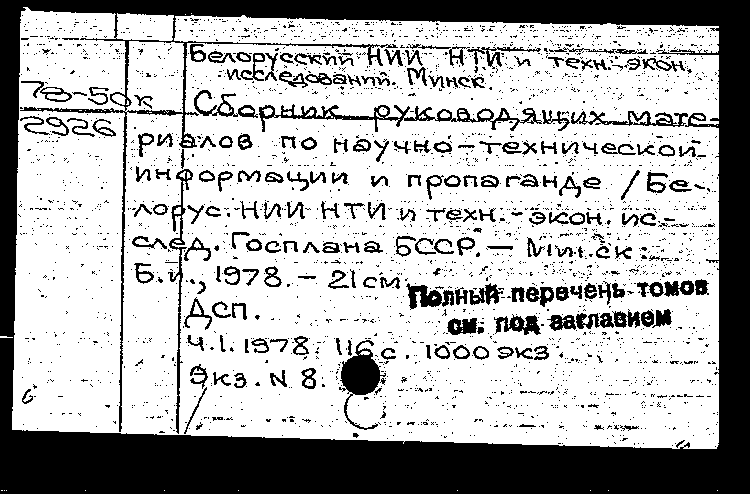 Белорусский НИИ НТИ и техн.-экон.
исследований. Минск.
78-50к
2926
Сборник руководящих мате-
риалов по научно-технической
информации и пропаганде / Бе-
лорус. НИИ НТИ и техн.-экон. ис-
след. Госплана БССР. — Минск:
Б.и., 1978. — 21 см.
Полный перечень томов
см. под заглавием
ДСП.
Ч.1. 1978. 116 с. 1000 экз.
Экз. N 8.
б